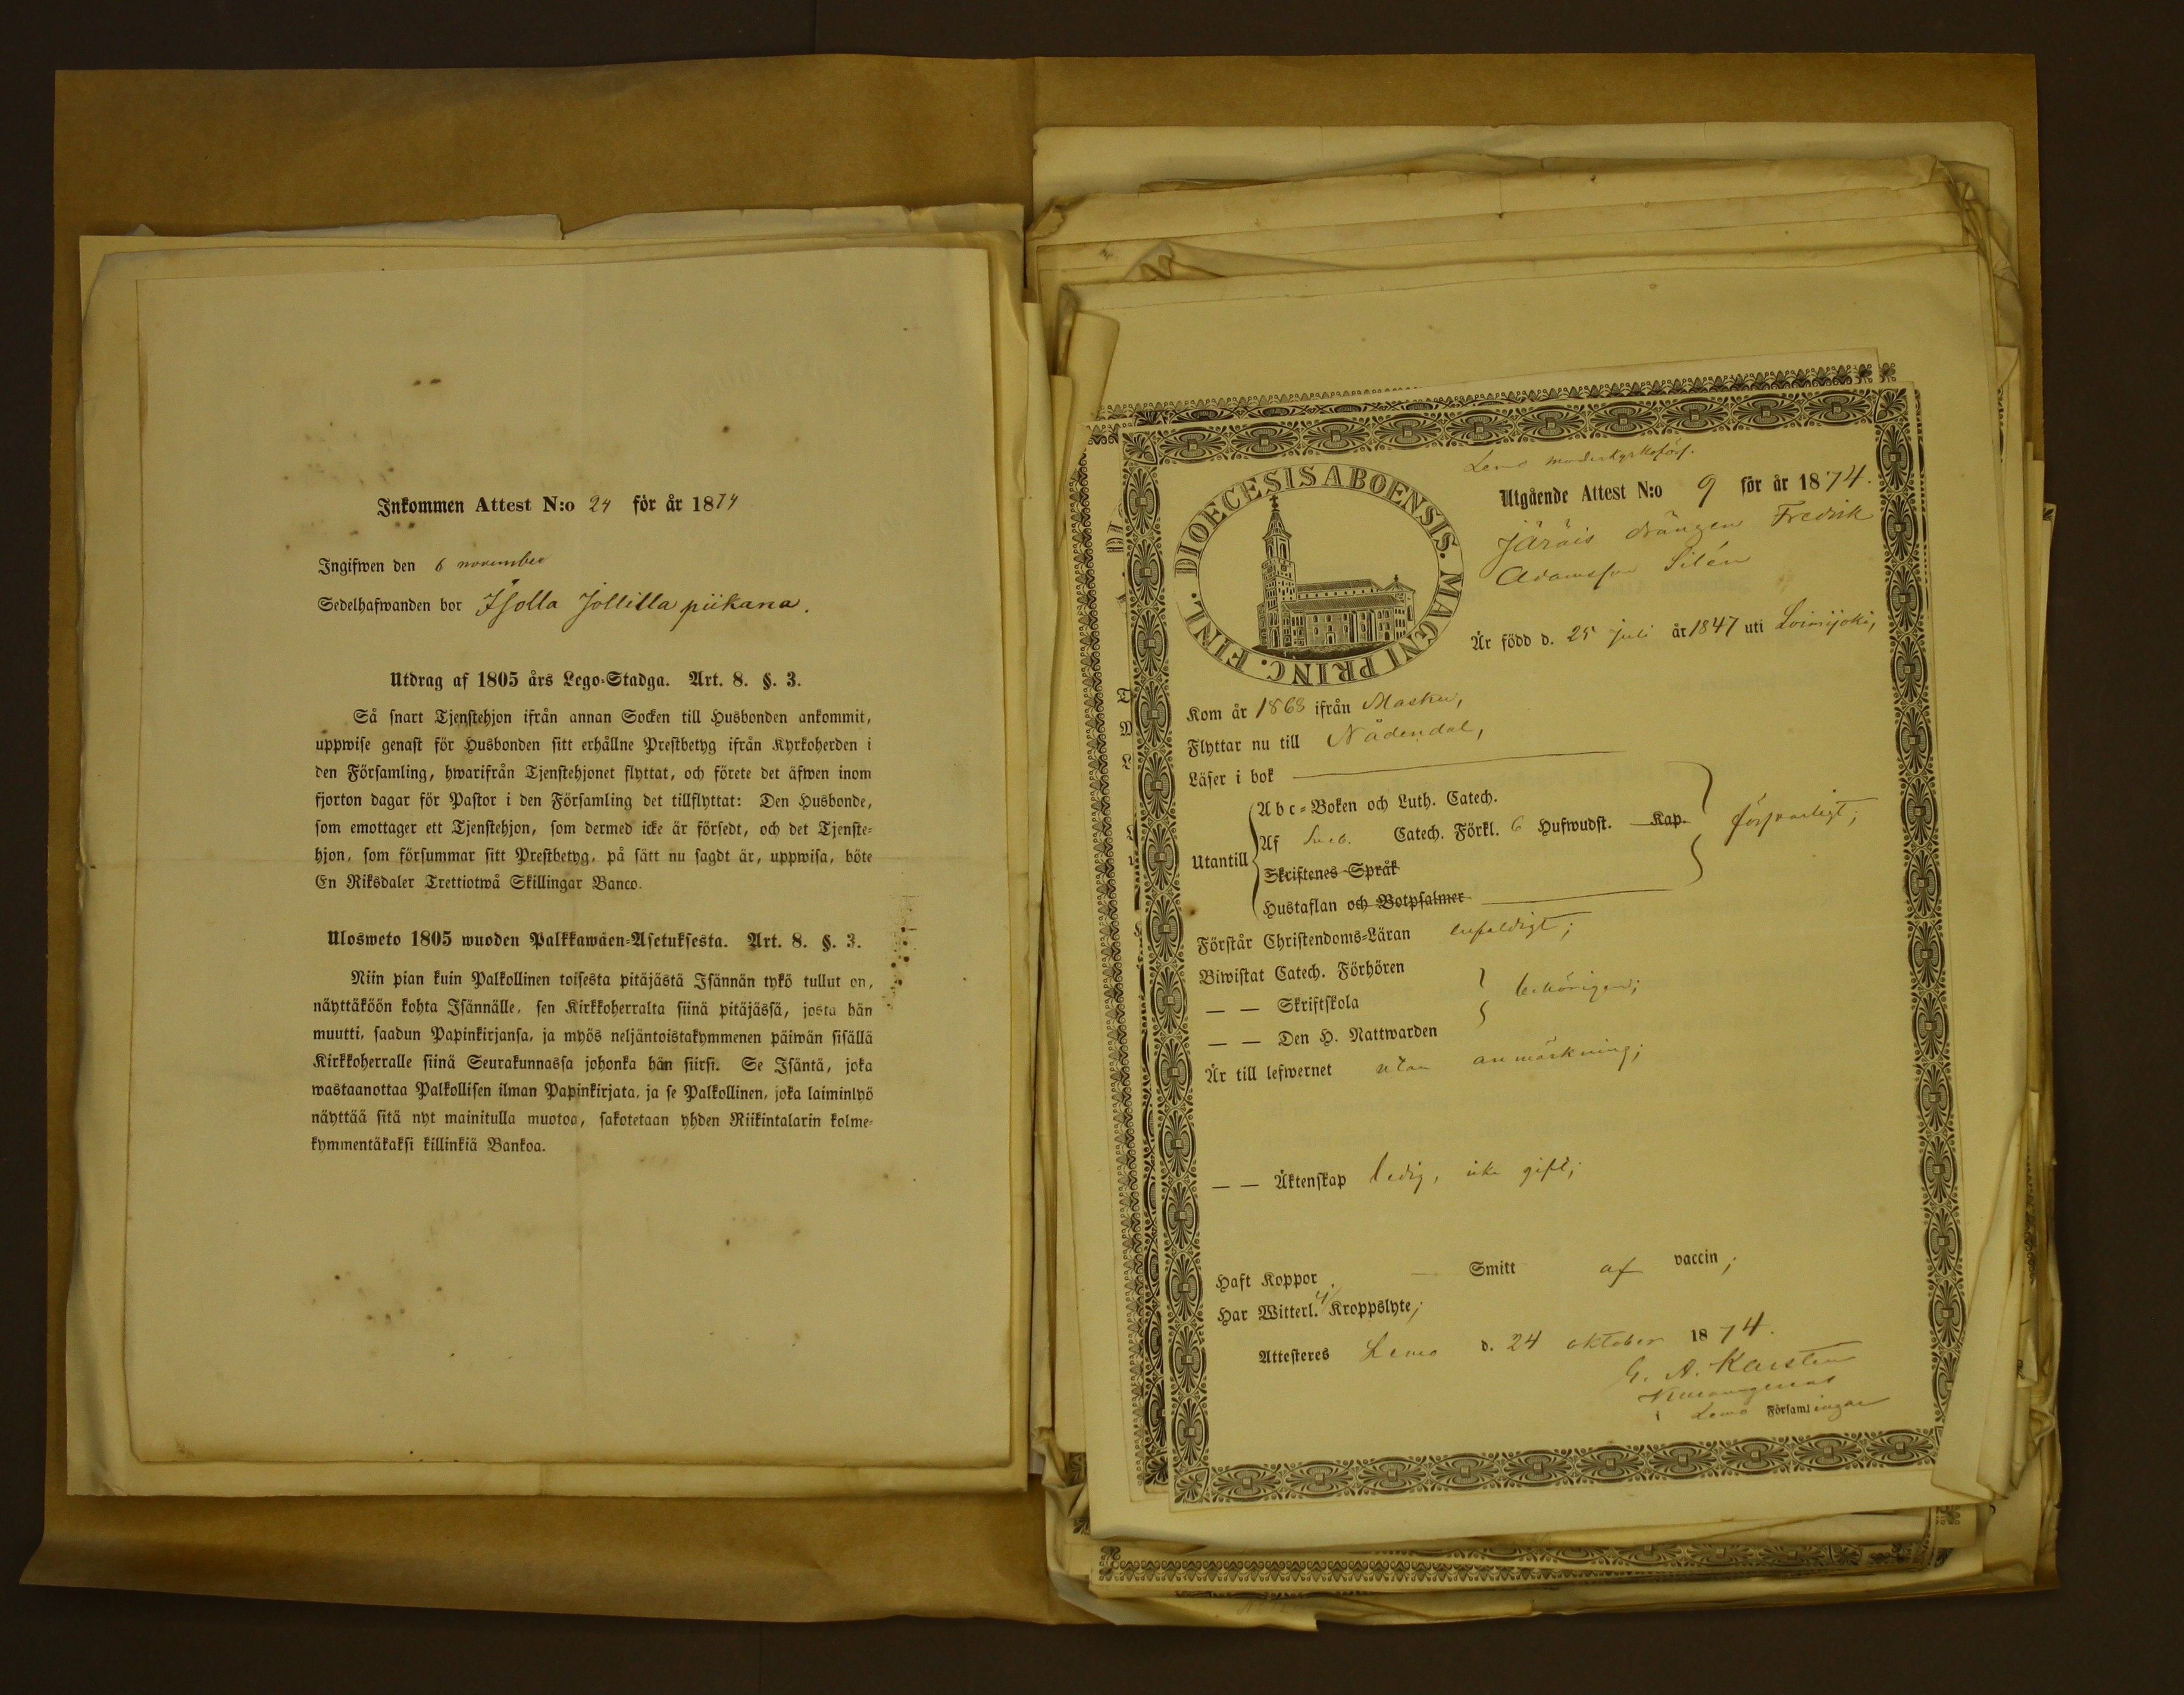 Inkommen Attest N:o 24 för år 1874
Ingifwen den 6 november
Sedelhafwanden bor Isolla Jollilla piikana.
Utdrag af 1805 års Lego-Stadga. Art. 8. §. 3.
Så snart Tjenstehjon ifrån annan Socken till Husbonden ankommit,
uppwise genast för Husbonden sitt erhållne Prestbetyg ifrån Kyrkoherden i
den Församling, hwarifrån Tjenstehjonet flyttat, och förete det äfwen inom
fjorton dagar för Pastor i den Församling det tillflyttat: Den Husbonde,
som emottager ett Tjenstehjon, som dermed icke är försedt, och det Tjenste-
hjon, som försummar sitt Prestbetyg, på sätt nu sagdt är, uppwisa, böte
En Riksdaler Trettiotwå Skillingar Banco.
Ulosweto 1805 wuoden Palkkawäen-Asetuksesta. Art. 8. §. 3.
Niin pian kuin Palkollinen toisesta pitäjästä Isännän tykö tullut on,
näyttäköön kohta Isännälle, sen Kirkkoherralta siinä pitäjässä, josta hän
muutti, saadun Papinkirjansa, ja myös neljäntoistakymmenen päiwän sisällä
Kirkkoherralle siinä Seurakunnassa johonka hän siirsi. Se Isäntä, joka
wastaanottaa Palkollisen ilman Papinkirjata, ja se Palkollinen, joka laiminlyö
näyttää sitä nyt mainitulla muotoa, sakotetaan yhden Riikintalarin kolme-
kymmentäkaksi killinkiä Bankoa.
Lemo moderkyrkoförs.
DIOECESIS ABOENSIS. MAGNI PRINC. FINL.
Utgående Attest N:o 9 för år 1874.
Järäis drängen Fredrik
Adamsson Silén
Är född d. 25 juli år 1847 uti Loimijoki,
Kom år 1868 ifrån Masku,
Flyttar nu till Nådendal,
Läser i bok
Utantill
Abc-Boken och Luth. Catech.
Af Sveb. Catech. Förkl. 6 Hufwudst. Kap. försvarligt;
Skriftenes Språk
Hustaflan och Botpsalmer
Förstår Christendoms-Läran enfaldigt;
Biwistat Catech. Förhören
— — Skriftskola behörigen;
— — Den H. Nattwarden
Är till lefwernet utan anmärkning;
— — Äktenskap ledig, icke gift;
Haft Koppor — Smitt af vaccin;
Har Witterl. ej Kroppslyte;
Attesteres Lemo d. 24 oktober 1874.
G. A. Karsten
i Lemo Församlingar